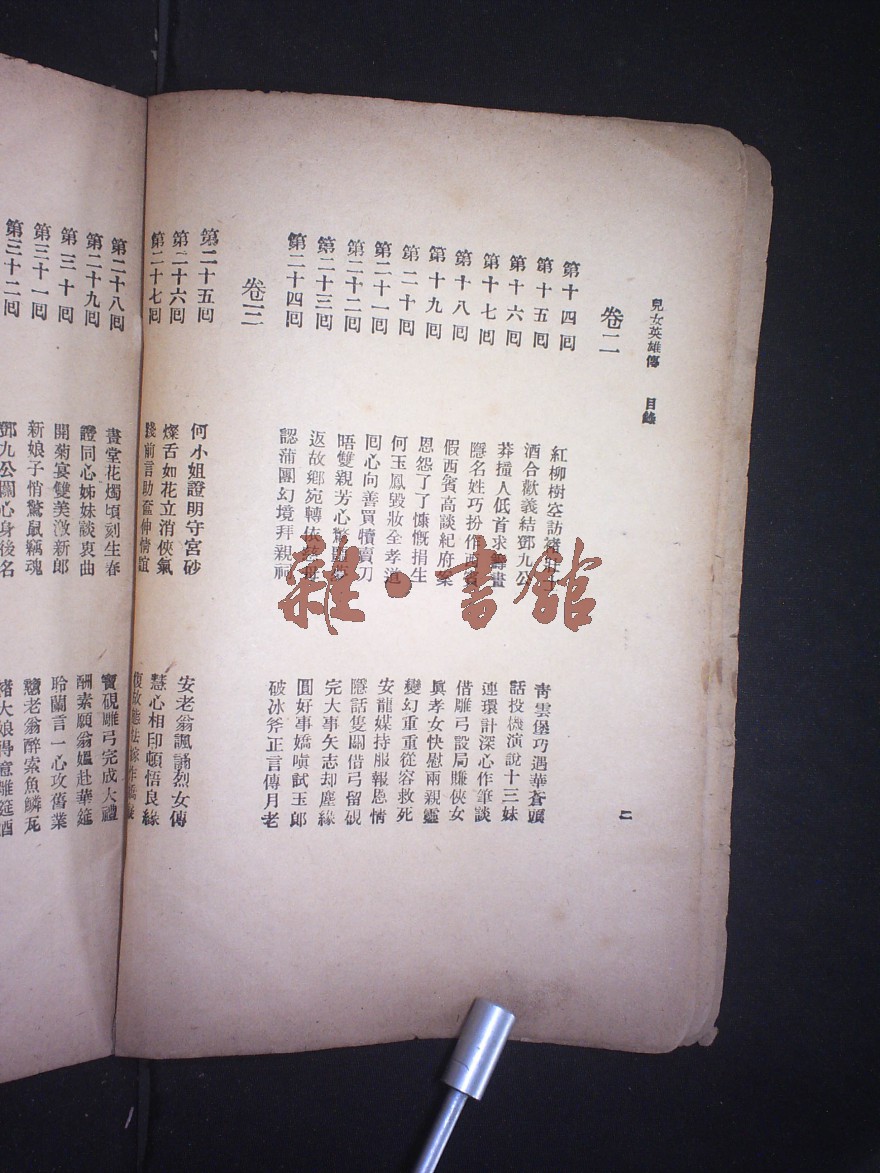 兒女英雄傳 目錄
二
卷二
第十四囘 紅柳樹空訪褚壯士 靑雲堡巧遇華蒼頭
第十五囘 酒合歡義結鄧九公 話投機演說十三妹
第十六囘 莽撞人低首求籌畫 連環計深心作筆談
第十七囘 隱名姓巧扮作西賓 借雕弓設局賺俠女
第十八囘 假西賓高談紀府案 眞孝女快慰兩親靈
第十九囘 恩怨了了慷慨捐生 變幻重重從容救死
第二十囘 何玉鳳毀妝全孝道 安龍媒持服報恩情
第二十一囘 囘心向善買犢賣刀 隱語雙關借弓留硯
第二十二囘 晤雙親芳心驚噩夢 完大事矢志却塵緣
第二十三囘 返故鄕宛轉依慈母 圓好事嬌嗔試玉郞
第二十四囘 認蒲團幻境拜親祠 破冰斧正言傳月老
卷三
第二十五囘 何小姐證明守宮砂 安老翁諷誦烈女傳
第二十六囘 燦舌如花立消俠氣 慧心相印頓悟良緣
第二十七囘 踐前言助奩伸情誼 復故態
第二十八囘 畫堂花燭頃刻生春 寶硯雕弓完成大禮
第二十九囘 證同心姊妹談衷曲 酬素願翁媼赴華筵
第三十囘 開菊宴雙美激新郞 聆蘭言一心攻舊業
第三十一囘 新娘子悄驚鼠竊魂 戇老翁醉索魚鱗瓦
第三十二囘 鄧九公關心身後名 褚大娘得意離筵酒
雜·書館